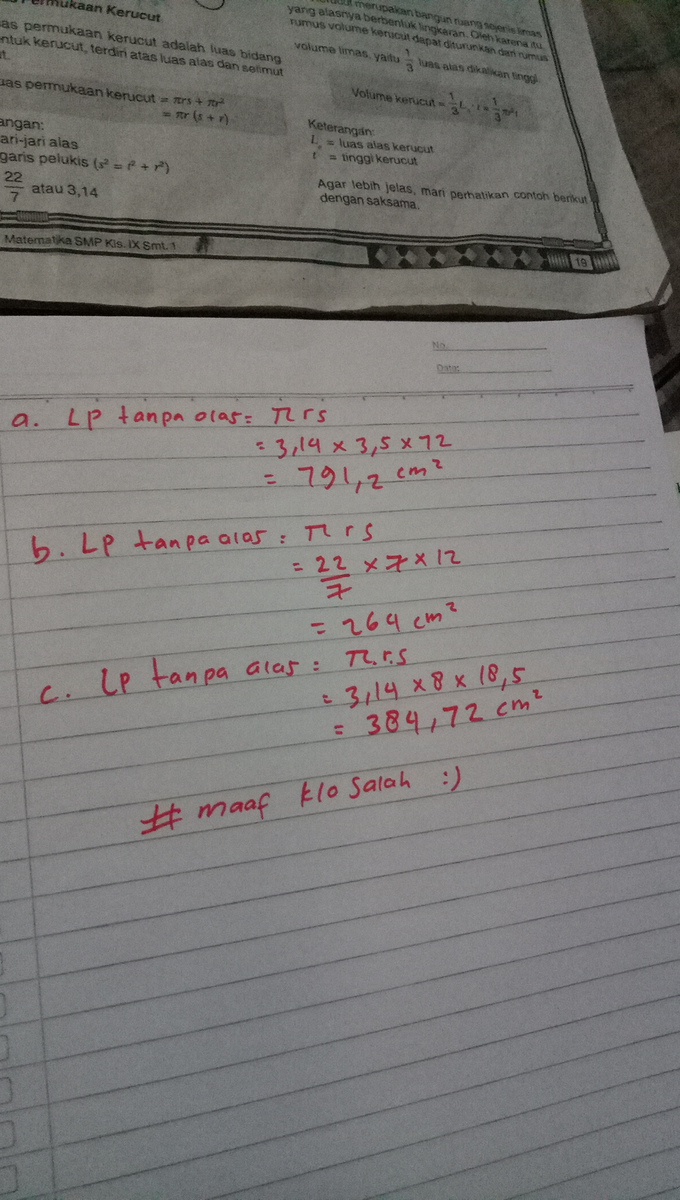 Permukaan Kerucut
permukaan kerucut adalah luas bidang
kerucut, terdiri atas luas alas dan selimut
permukaan kerucut = πrs + πr²
= πr (s + r)
alas
garis pelukis (s² = t² + r²)
22/7 atau 3,14
Matematika SMP Kls. IX Smt. 1
merupakan bangun ruang sejenis limas
yang alasnya berbentuk lingkaran. Oleh karena itu,
rumus volume kerucut dapat diturunkan dari rumus
volume limas, yaitu 1/3 luas alas dikalikan tinggi.
Volume kerucut = 1/3 L . t = 1/3 πr²t
Keterangan:
L = luas alas kerucut
t = tinggi kerucut
Agar lebih jelas, mari perhatikan contoh berikut
dengan saksama.
19
No.
Date:
a. LP tanpa alas = π r s
= 3,14 x 3,5 x 72
= 791,2 cm²
b. LP tanpa alas : π r s
= 22/7 x 7 x 12
= 264 cm²
c. LP tanpa alas : π.r.s
= 3,14 x 8 x 18,5
= 384,72 cm²
# maaf klo salah :)